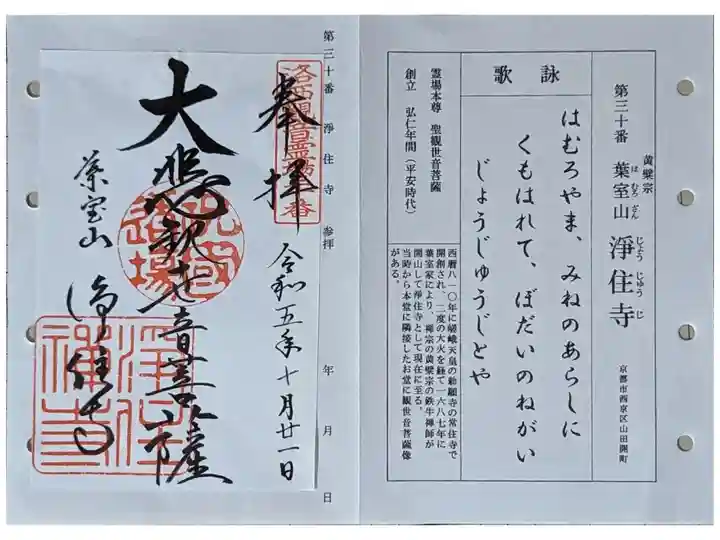 黄檗宗
第三十番 葉室山 淨住寺
は むろ ざん
じょう じゅう じ
京都市西京区山田開町
詠歌
はむろやま、みねのあらしに
くもはれて、ぼだいのねがい
じょうじゅうじとや
霊場本尊 聖観世音菩薩
創立 弘仁年間(平安時代)
西暦八一〇年に嵯峨天皇の勅願寺の常住寺で
開創され、二度の大火を経て一六八七年に
葉室家により、禅宗の黄檗宗の鉄牛禅師が
開山して浄住寺として現在に至る。
当時から本堂に隣接したお堂に観世音菩薩像
がある。
第三十番 淨住寺 参拝 年 月 日
洛西観音霊場
番
奉拝
令和五年十月廿一日
大悲観世音菩薩
葉室山 浄住寺
洛西
霊場